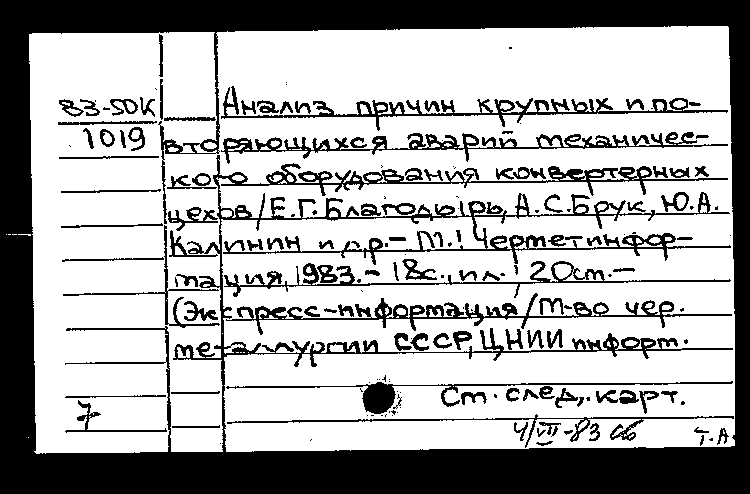 83-5DK
1019
Анализ причин крупных и по-
вторяющихся аварий механичес-
кого оборудования конвертерных
цехов/Е.Г.Благодырь, А.С.Брук, Ю.А.
Калинин и др.- М.: Черметинфор-
мация, 1983.- 18с., ил.; 20см.-
(Экспресс-информация/М-во чер.
металлургии СССР, ЦНИИ информ.
См. след. карт.
7
4/VII-83
Т.А.